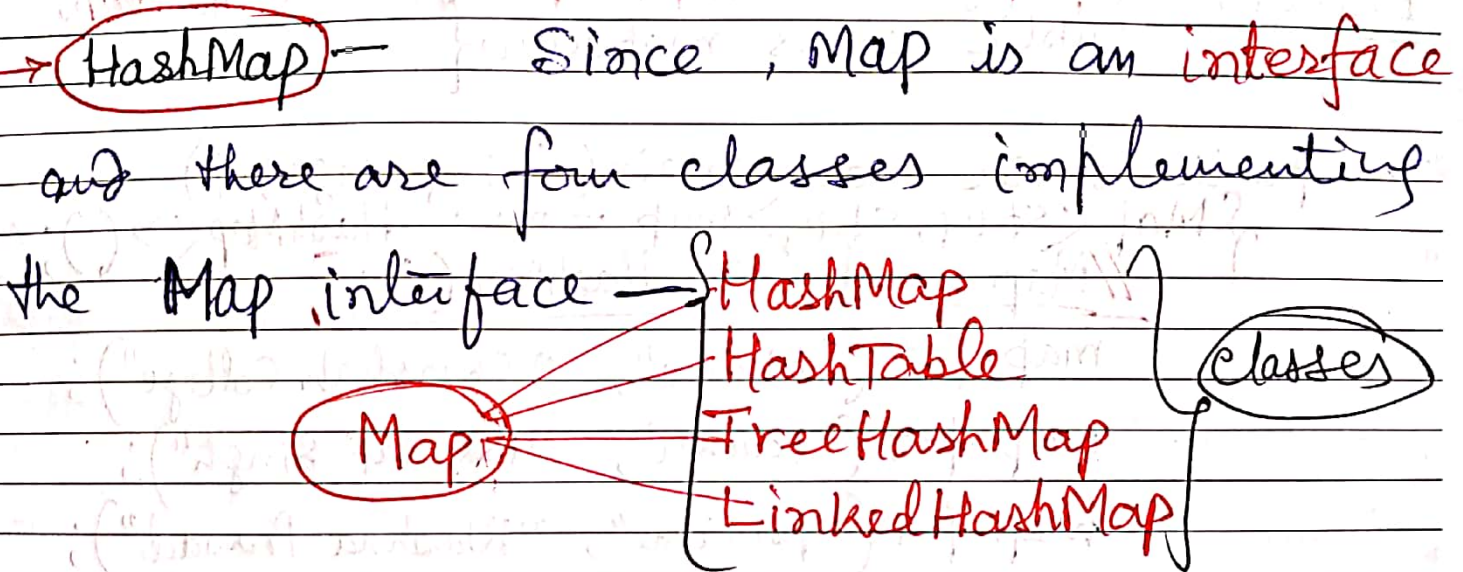 → HashMap — Since, Map is an interface
and there are four classes implementing
the Map interface — HashMap
HashTable
classes
Map
TreeHashMap
LinkedHashMap